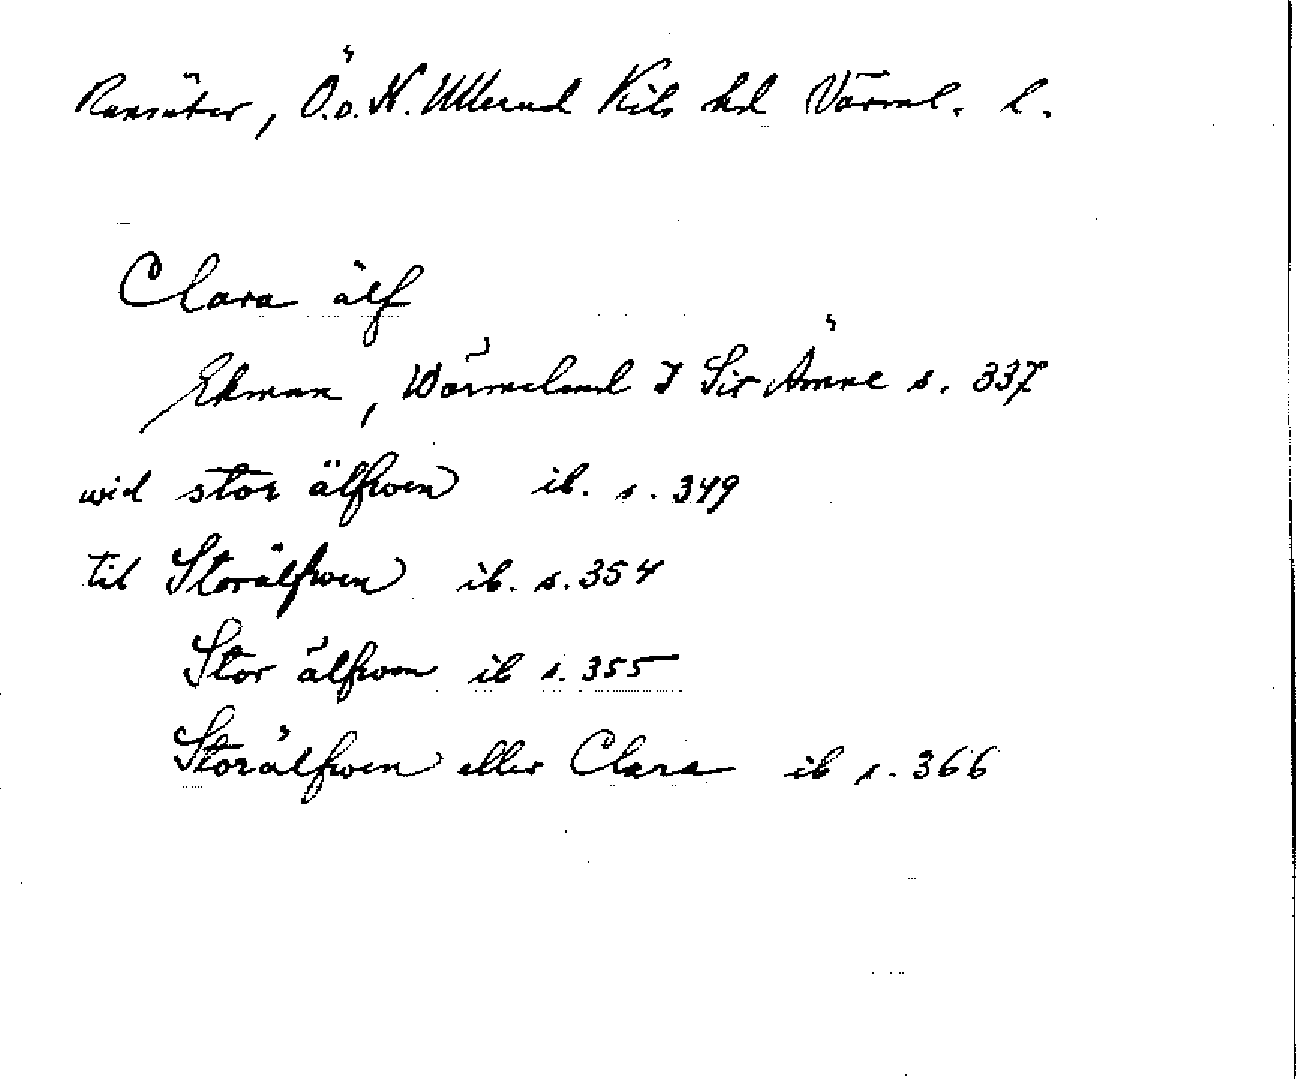 Ransäter, Ö. o. N. Ullerud Kils hd Värml. l.
Clara älf
Ekman, Wärmeland I Sir Ämne s. 337
wid stor älfwen ib. s. 349
til Storälfwen ib. s. 354
Stor älfwen ib s. 355
Storälfwen eller Clara ib s. 366